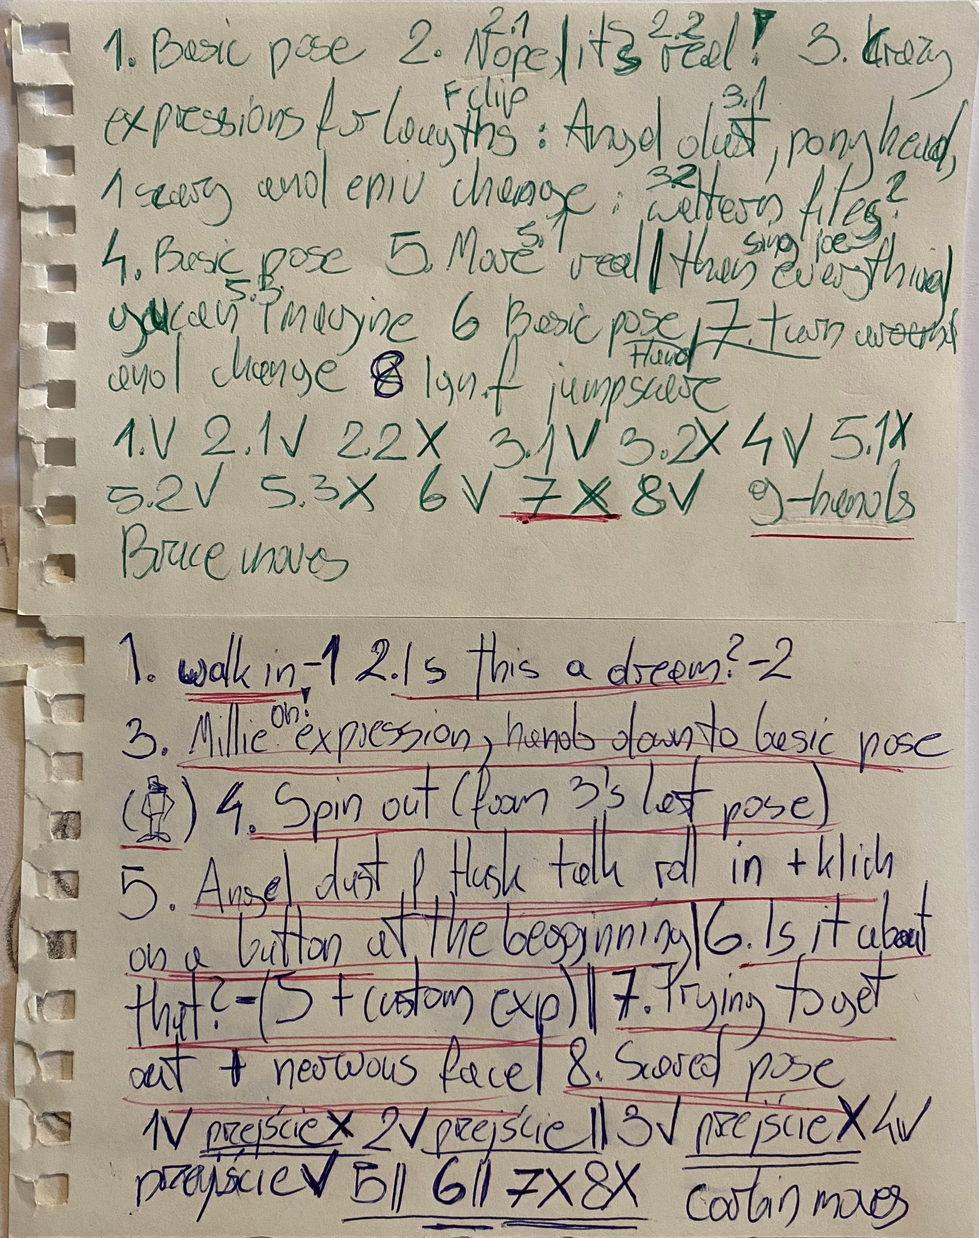 1. Basic pose 2. Nope, it's real! 3. Krazy
2.1 2.2
expressions for loughts: Angel dust, ponyhead,
F clip 3.1
1 scary and epiv change: western files?
3.2
4. Basic pose 5. More real | then everything
5.1 sing joe
you can imagine 6 Basic pose, 7. turn around
5.3
and change 8 jumpscare
Hand
1.V 2.1V 2.2X 3.1V 3.2X 4V 5.1X
5.2V 5.3X 6V 7X 8V g-hands
Bruce moves
1. walk in-1 2. Is this a dream?-2
3. Millie oh! expression, hands down to basic pose
( ) 4. Spin out (from 3's last pose)
5. Angel dust, Husk talk roll in + klick
on a button at the begginning | 6. Is it about
that?=(5 + custom exp) || 7. Trying to get
out + nervous face | 8. Scared pose
1V przejścieX 2V przejście || 3V przejścieX 4V
przejścieV 5|| 6|| 7X 8X moves